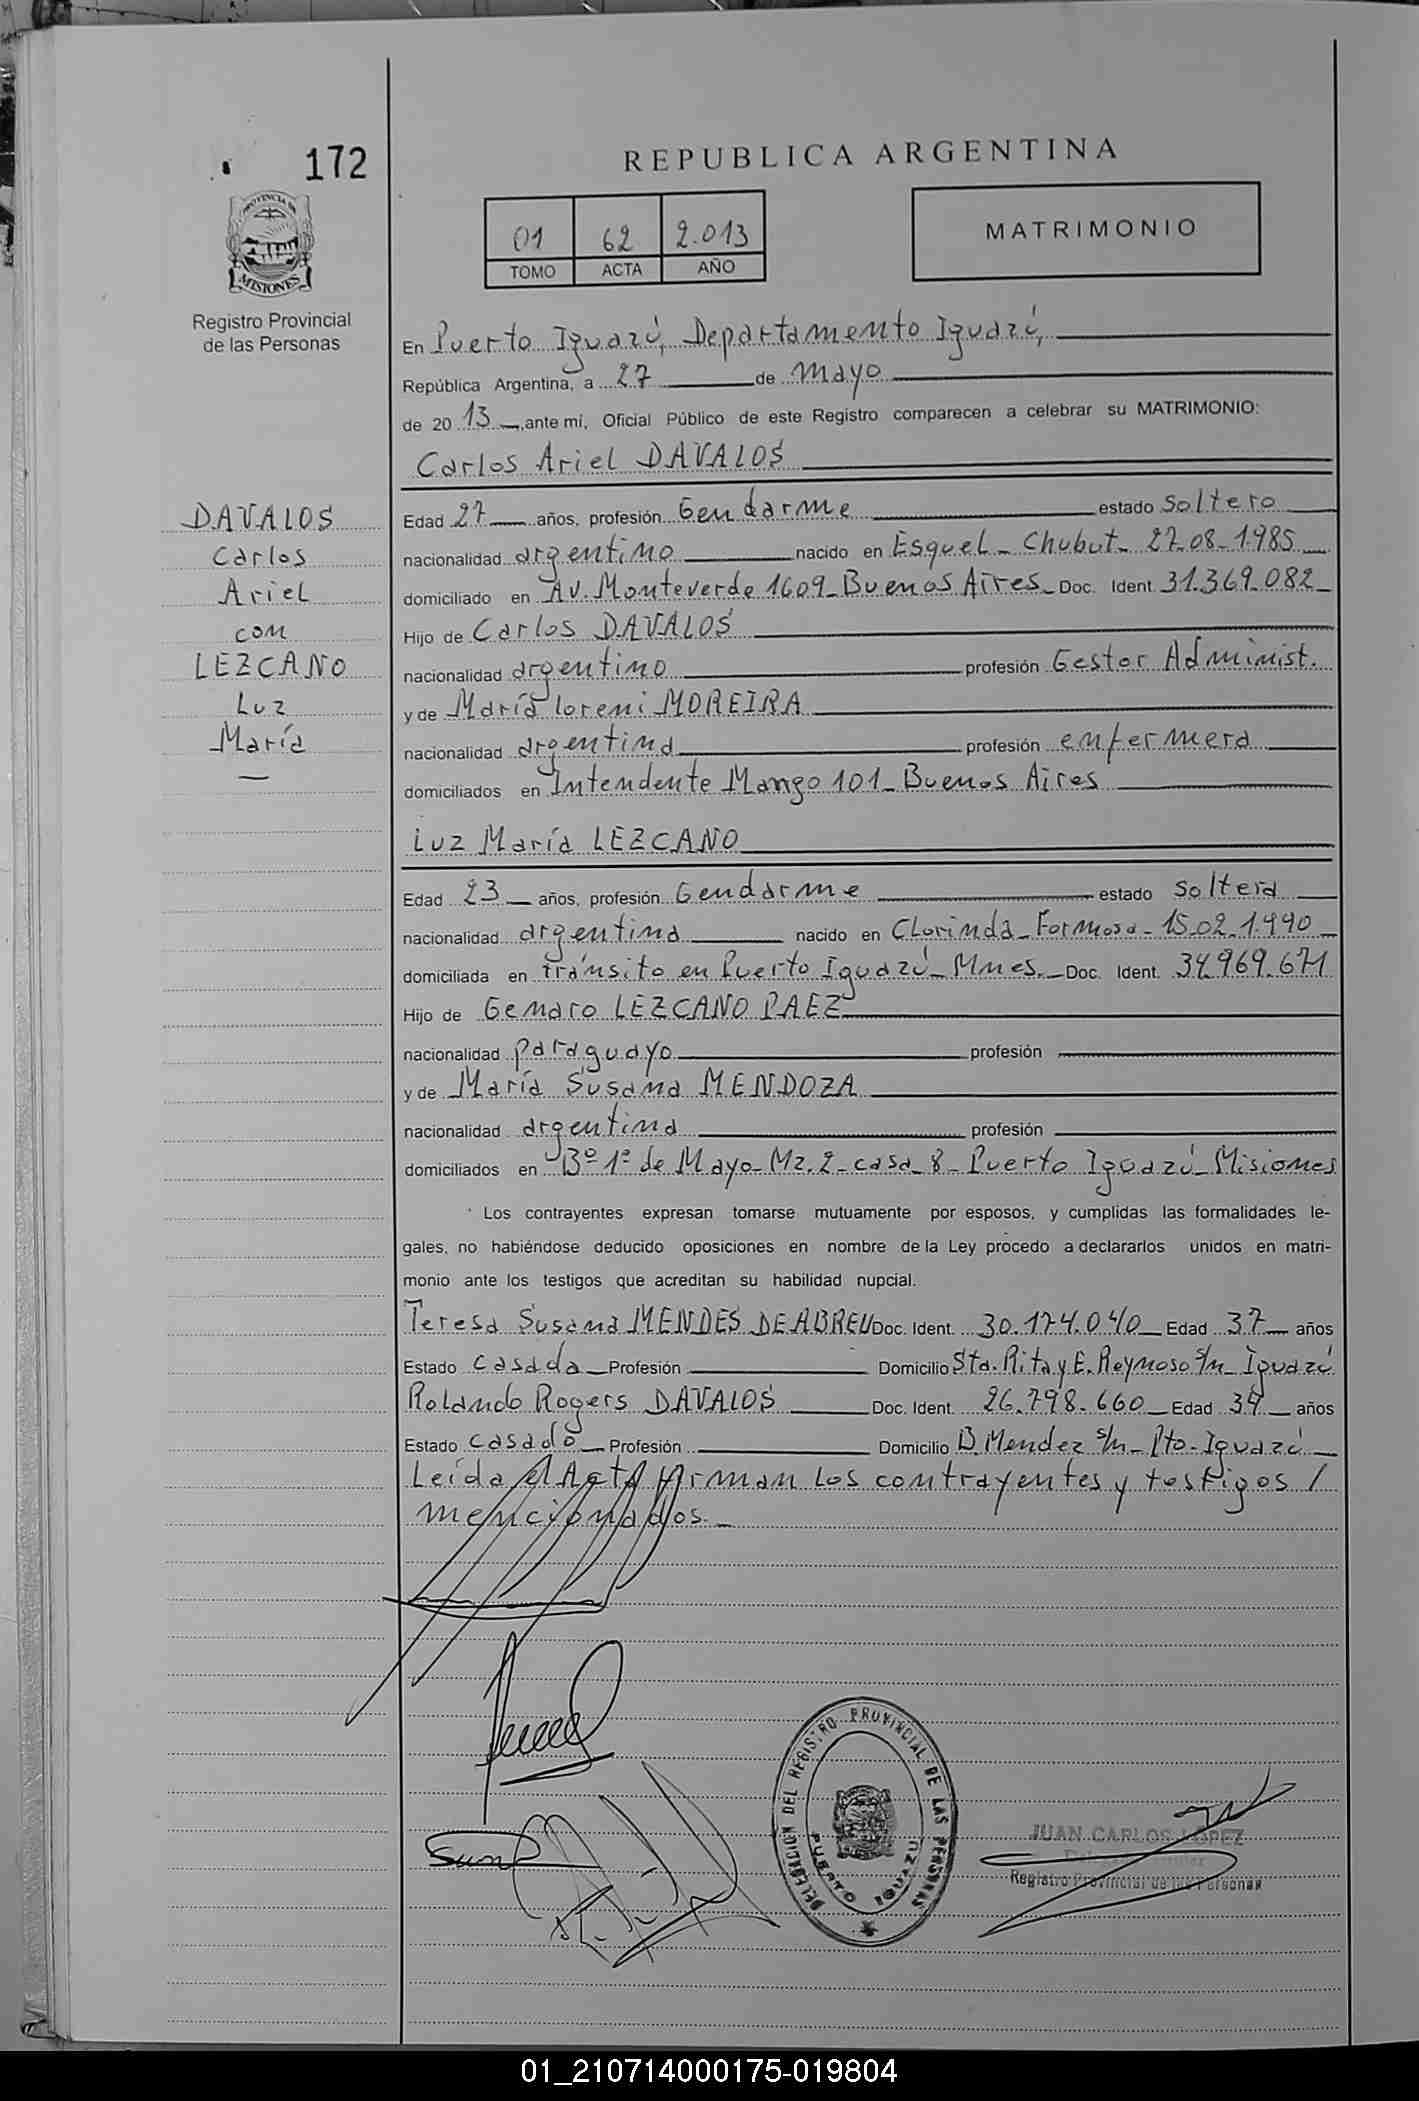 172
REPUBLICA ARGENTINA
PROVINCIA DE
MISIONES
Registro Provincial
de las Personas
01 62 2.013
TOMO ACTA AÑO
MATRIMONIO
En Puerto Iguazú, Departamento Iguazú,
República Argentina, a 27 de mayo
de 2013, ante mí, Oficial Público de este Registro comparecen a celebrar su MATRIMONIO:
Carlos Ariel DAVALOS
DAVALOS
Carlos
Ariel
con
LEZCANO
Luz
María
Edad 27 años, profesión Gendarme estado soltero
nacionalidad argentino nacido en Esquel - Chubut - 27-08-1985
domiciliado en Av. Monteverde 1609 - Buenos Aires - Doc. Ident. 31.369.082
Hijo de Carlos DAVALOS
nacionalidad argentino profesión Gestor Administ.
y de María loreni MOREIRA
nacionalidad argentina profesión enfermera
domiciliados en Intendente Mango 101 - Buenos Aires
Luz María LEZCANO
Edad 23 años, profesión Gendarme estado soltera
nacionalidad argentina nacido en Clorinda - Formosa - 15-02-1990
domiciliada en tránsito en Puerto Iguazú - Mnes. - Doc. Ident. 34.969.671
Hijo de Genaro LEZCANO PAEZ
nacionalidad paraguayo profesión
y de María Susana MENDOZA
nacionalidad argentina profesión
domiciliados en Bº 1º de Mayo - Mz. 2 - casa 8 - Puerto Iguazú - Misiones
Los contrayentes expresan tomarse mutuamente por esposos, y cumplidas las formalidades le-
gales, no habiéndose deducido oposiciones en nombre de la Ley procedo a declararlos unidos en matri-
monio ante los testigos que acreditan su habilidad nupcial.
Teresa Susana MENDES DE ABREU Doc. Ident. 30.174.040 Edad 37 años
Estado casada Profesión Domicilio Sta. Rita y E. Reymoso s/n - Iguazú
Rolando Rogers DAVALOS Doc. Ident. 26.798.660 Edad 34 años
Estado casado Profesión Domicilio B. Mendez s/n - Pto. Iguazú
Leída el Acta firman los contrayentes y testigos /
mencionados.-
DELEGACION DEL REGISTRO PROVINCIAL DE LAS PERSONAS
PUERTO IGUAZU
JUAN CARLOS LOPEZ
Registro Provincial de las Personas
01_210714000175-019804